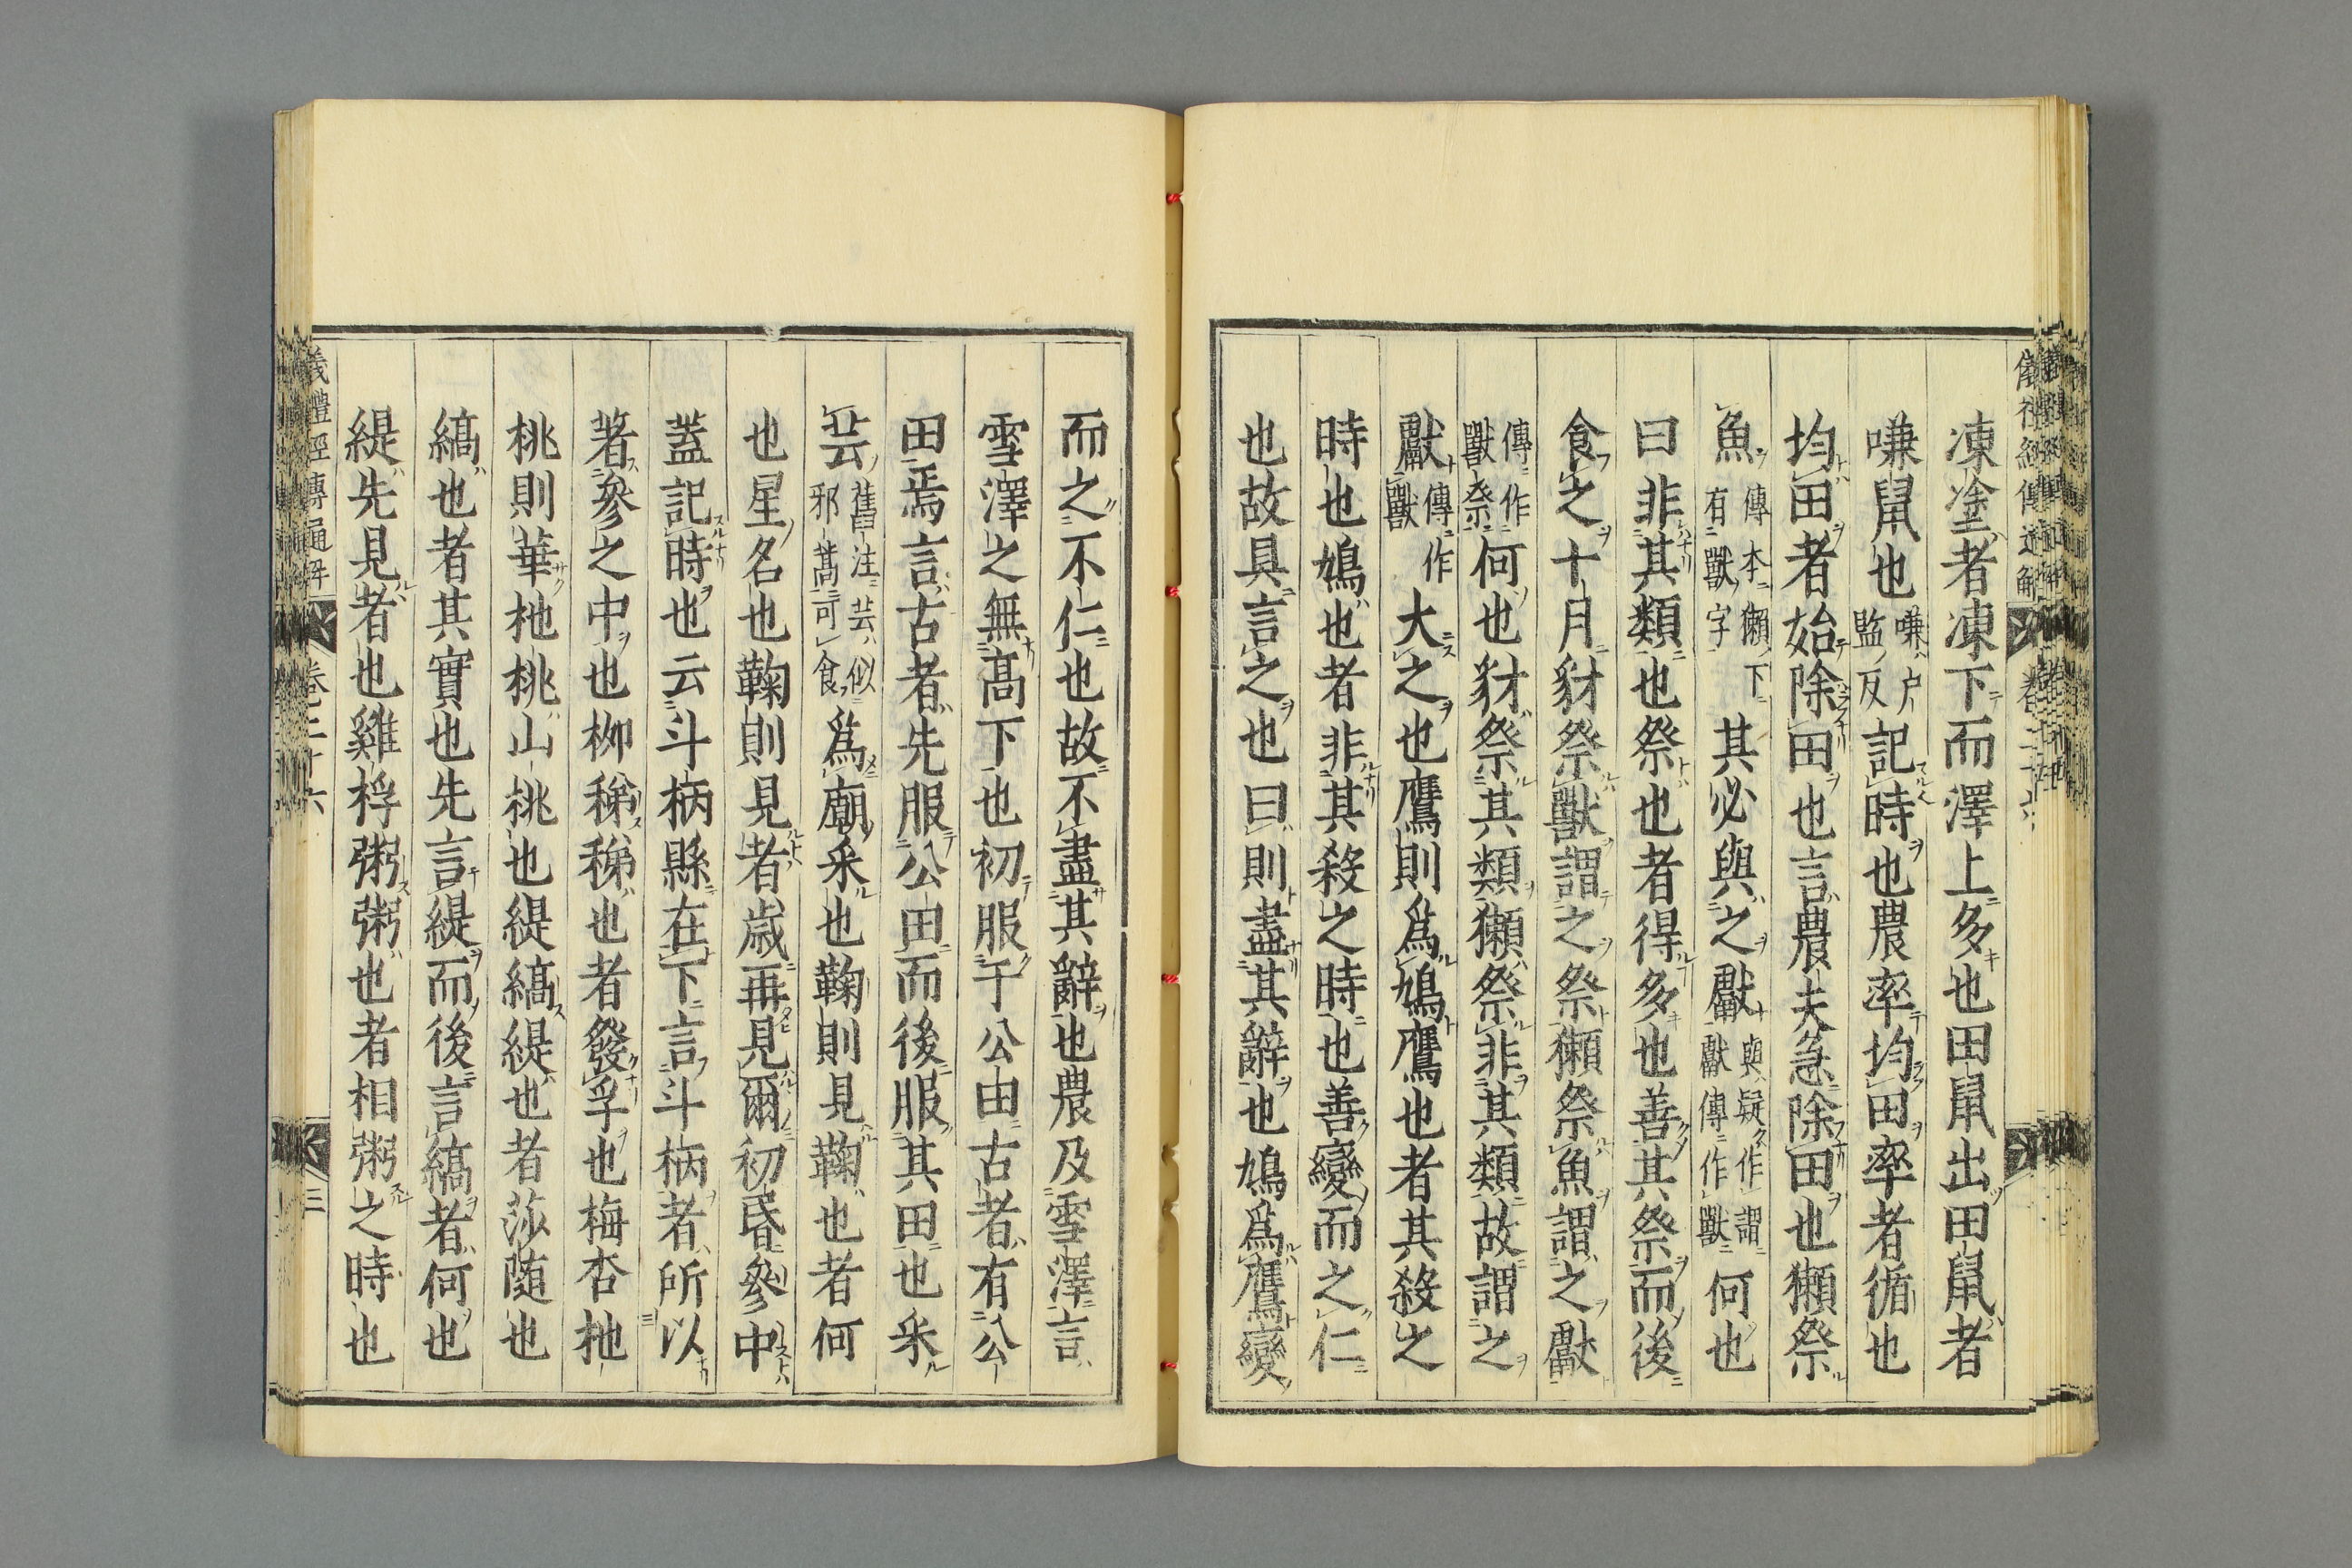 凍塗者凍下而澤上多也田鼠出田鼠者
嗛鼠也嗛戶監反記時也農率均田率者循也
均田者始除田也言農夫急除田也獺祭
魚傳本獺下有獸字其必與之獻與疑作謂獻傳作獸何也
曰非其類也祭也者得多也善其祭而後
食之十月豺祭獸謂之祭獺祭魚謂之獻
傳作獸祭何也豺祭其類獺祭非其類故謂之
獻傳作獸大之也鷹則爲鳩鷹也者其殺之
時也鳩也者非其殺之時也善變而之仁
也故具言之也曰則盡其辭也鳩爲鷹變
而之不仁也故不盡其辭也農及雪澤言
雪澤之無高下也初服于公田古者有公
田焉言古者先服公田而後服其田也采
芸舊注芸似邪蒿可食爲廟采也鞠則見鞠也者何
也星名也鞠則見者歲再見爾初昏參中
蓋記時也云斗柄縣在下言斗柄者所以
著參之中也柳稊稊也者發孚也梅杏杝
桃則華杝桃山桃也緹縞緹也者莎隨也
縞也者其實也先言緹而後言縞者何也
緹先見者也雞桴粥粥也者相粥之時也
儀禮經傳通解
卷二十六
三